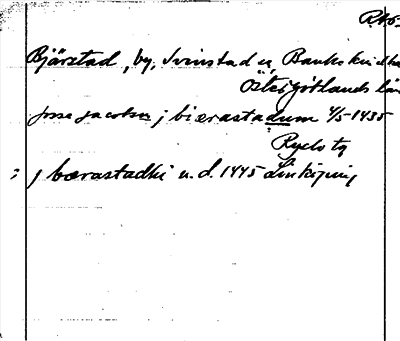 Bjärstad, by, Svinstad sn, Bankekinds hd
Östergötlands län
josse jacobsson j biærastadum 4/5 1435
Ryds tq
; j bærastadhi u. d. 1445 Linköping